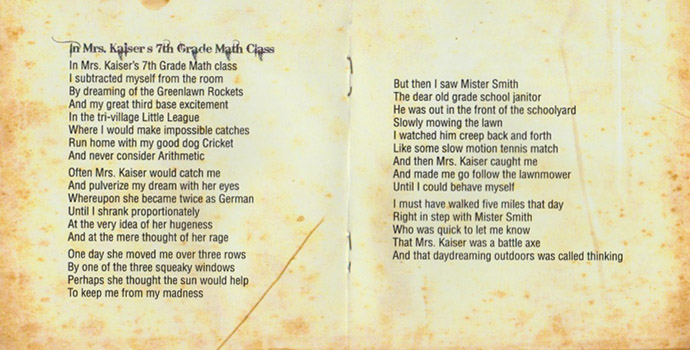 In Mrs. Kaiser s 7th Grade Math Class
In Mrs. Kaiser's 7th Grade Math class
I subtracted myself from the room
By dreaming of the Greenlawn Rockets
And my great third base excitement
In the tri-village Little League
Where I would make impossible catches
Run home with my good dog Cricket
And never consider Arithmetic
Often Mrs. Kaiser would catch me
And pulverize my dream with her eyes
Whereupon she became twice as German
Until I shrank proportionately
At the very idea of her hugeness
And at the mere thought of her rage
One day she moved me over three rows
By one of the three squeaky windows
Perhaps she thought the sun would help
To keep me from my madness
But then I saw Mister Smith
The dear old grade school janitor
He was out in the front of the schoolyard
Slowly mowing the lawn
I watched him creep back and forth
Like some slow motion tennis match
And then Mrs. Kaiser caught me
And made me go follow the lawnmower
Until I could behave myself
I must have walked five miles that day
Right in step with Mister Smith
Who was quick to let me know
That Mrs. Kaiser was a battle axe
And that daydreaming outdoors was called thinking